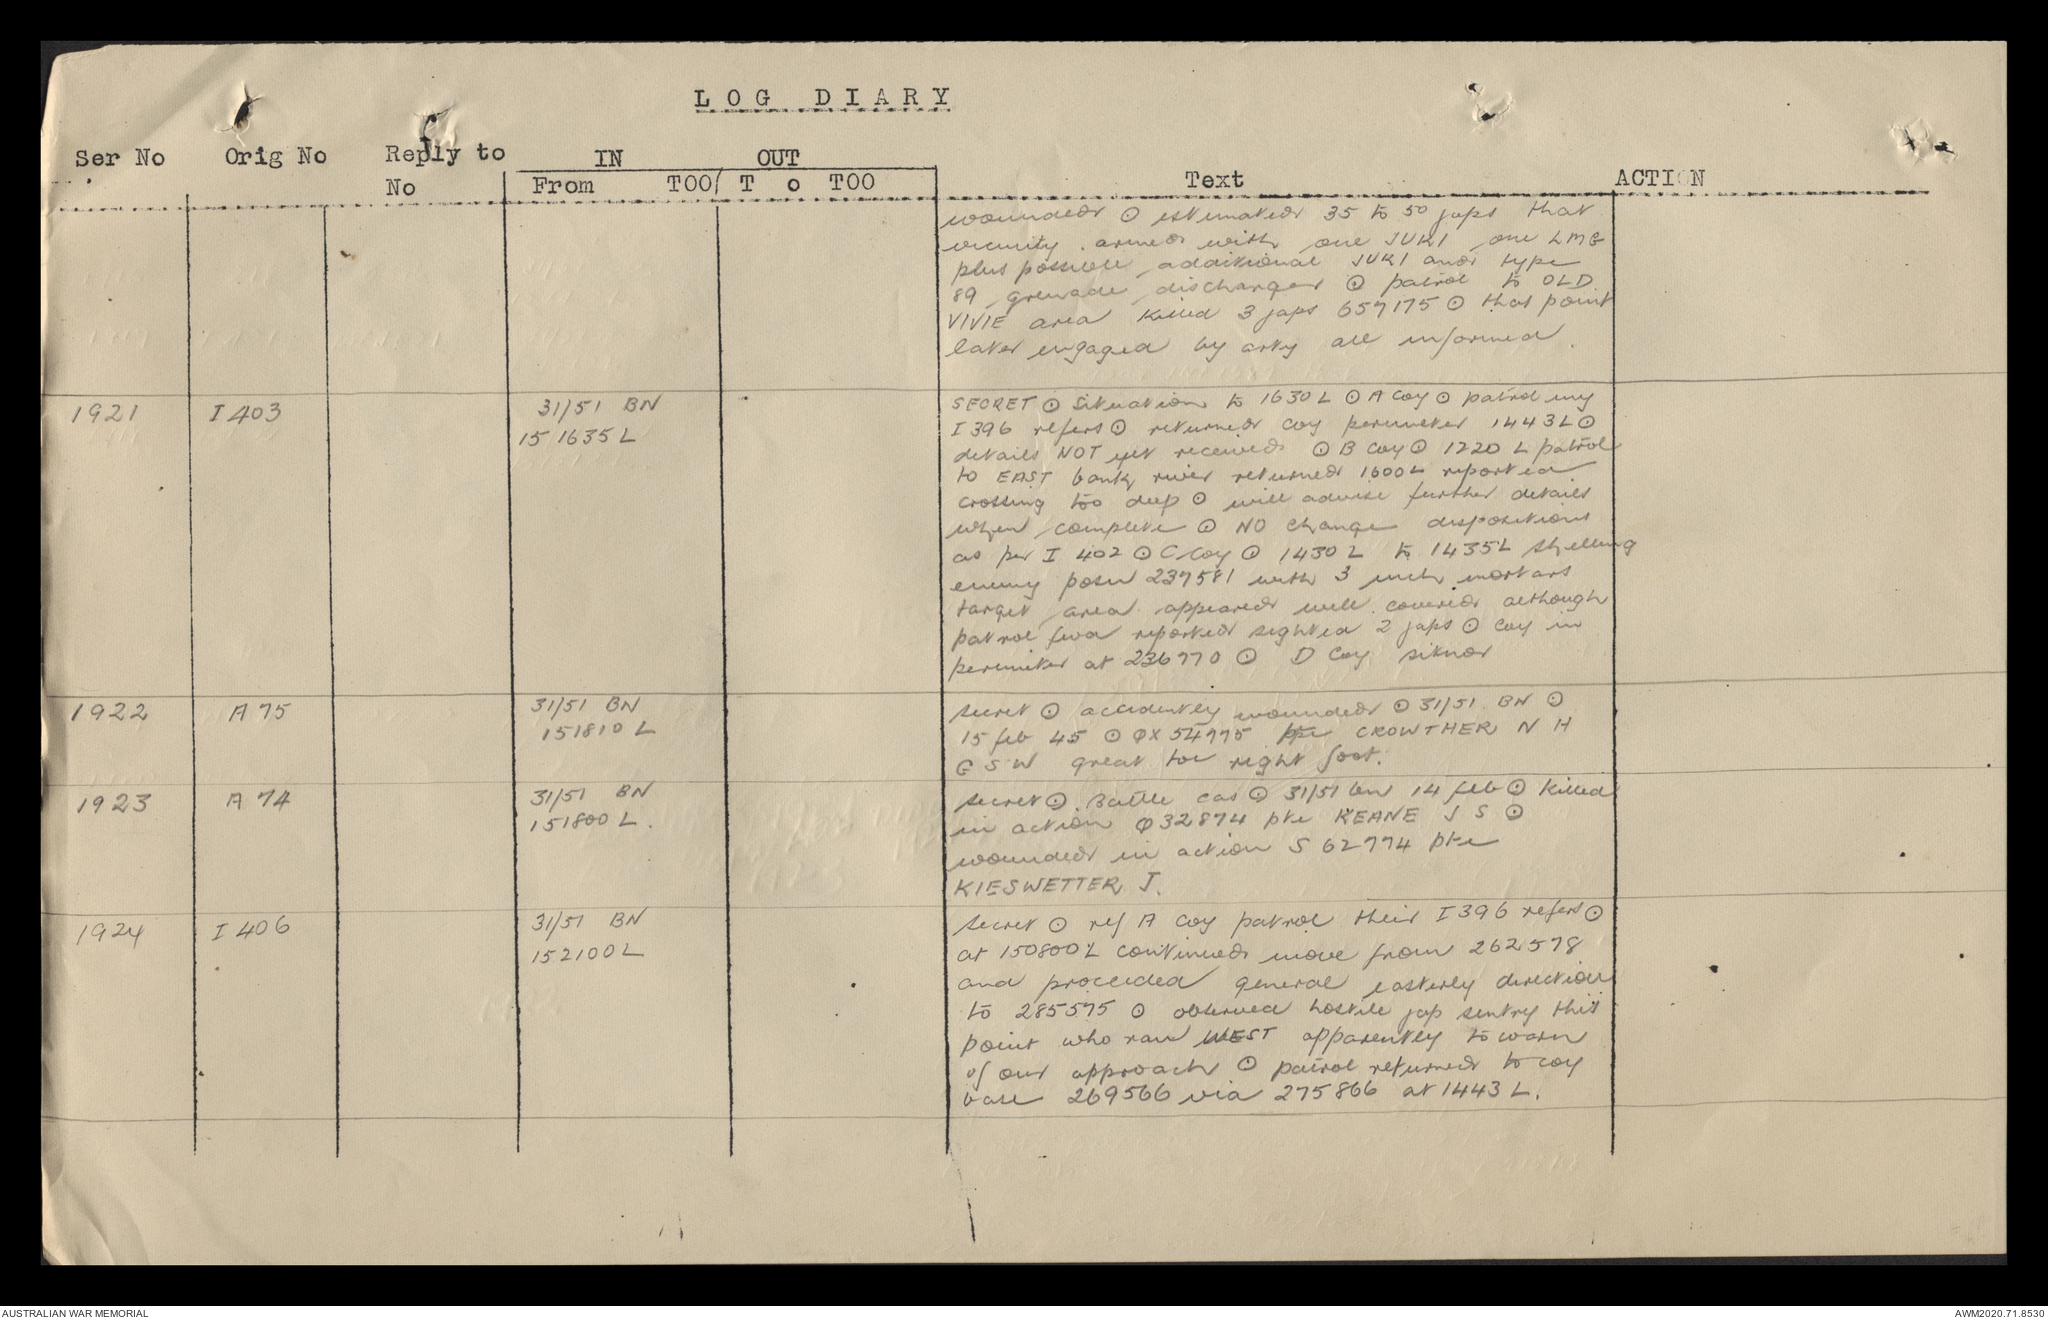 LOG DIARY
Ser No Orig No Reply to No IN OUT
From TOO/ T o TOO Text ACTION
wounded ⊙ estimated 35 to 50 japs that
vicinity. armed with one JUKI one LMG
plus possible additional JUKI and type
89 grenade discharger ⊙ patrol to OLD
VIVIE area killed 3 japs 657175 ⊙ that point
later engaged by arty all informed.
1921 I 403 31/51 BN
15 1635 L
SECRET ⊙ Situation to 1630 L ⊙ A Coy ⊙ patrol my
I 396 refers ⊙ returned coy perimeter 1443L ⊙
details NOT yet received ⊙ B Coy ⊙ 1220 L patrol
to EAST bank river returned 1600L reported
crossing too deep ⊙ will advise further details
when complete ⊙ NO change dispositions
as per I 402 ⊙ C Coy ⊙ 1430 L to 1435L shelling
enemy posn 237581 with 3 inch mortars
target area appeared well covered although
patrol fwd reported sighted 2 japs ⊙ Coy in
perimeter at 236770 ⊙ D Coy
1922 A 75 31/51 BN
151810 L
Secret ⊙ accidently wounded ⊙ 31/51 BN ⊙
15 feb 45 ⊙ QX 54775 pte CROWTHER N H
G S W great toe right foot.
1923 A 74 31/51 BN
151800 L.
Secret ⊙. Battle cas ⊙ 31/51 bn 14 feb ⊙ Killed
in action Q32874 pte KEANE J S ⊙
wounded in action S 62774 pte
KIESWETTER J.
1924 I 406 31/51 BN
152100 L
Secret ⊙ ref A coy patrol their I 396 refers ⊙
at 150800 L continued move from 262578
and proceeded general easterly direction
to 285575 ⊙ observed hostile jap sentry this
point who ran WEST apparently to warn
of our approach ⊙ patrol returned to coy
base 269566 via 275866 at 1443 L.
AUSTRALIAN WAR MEMORIAL AWM2020.71.8530